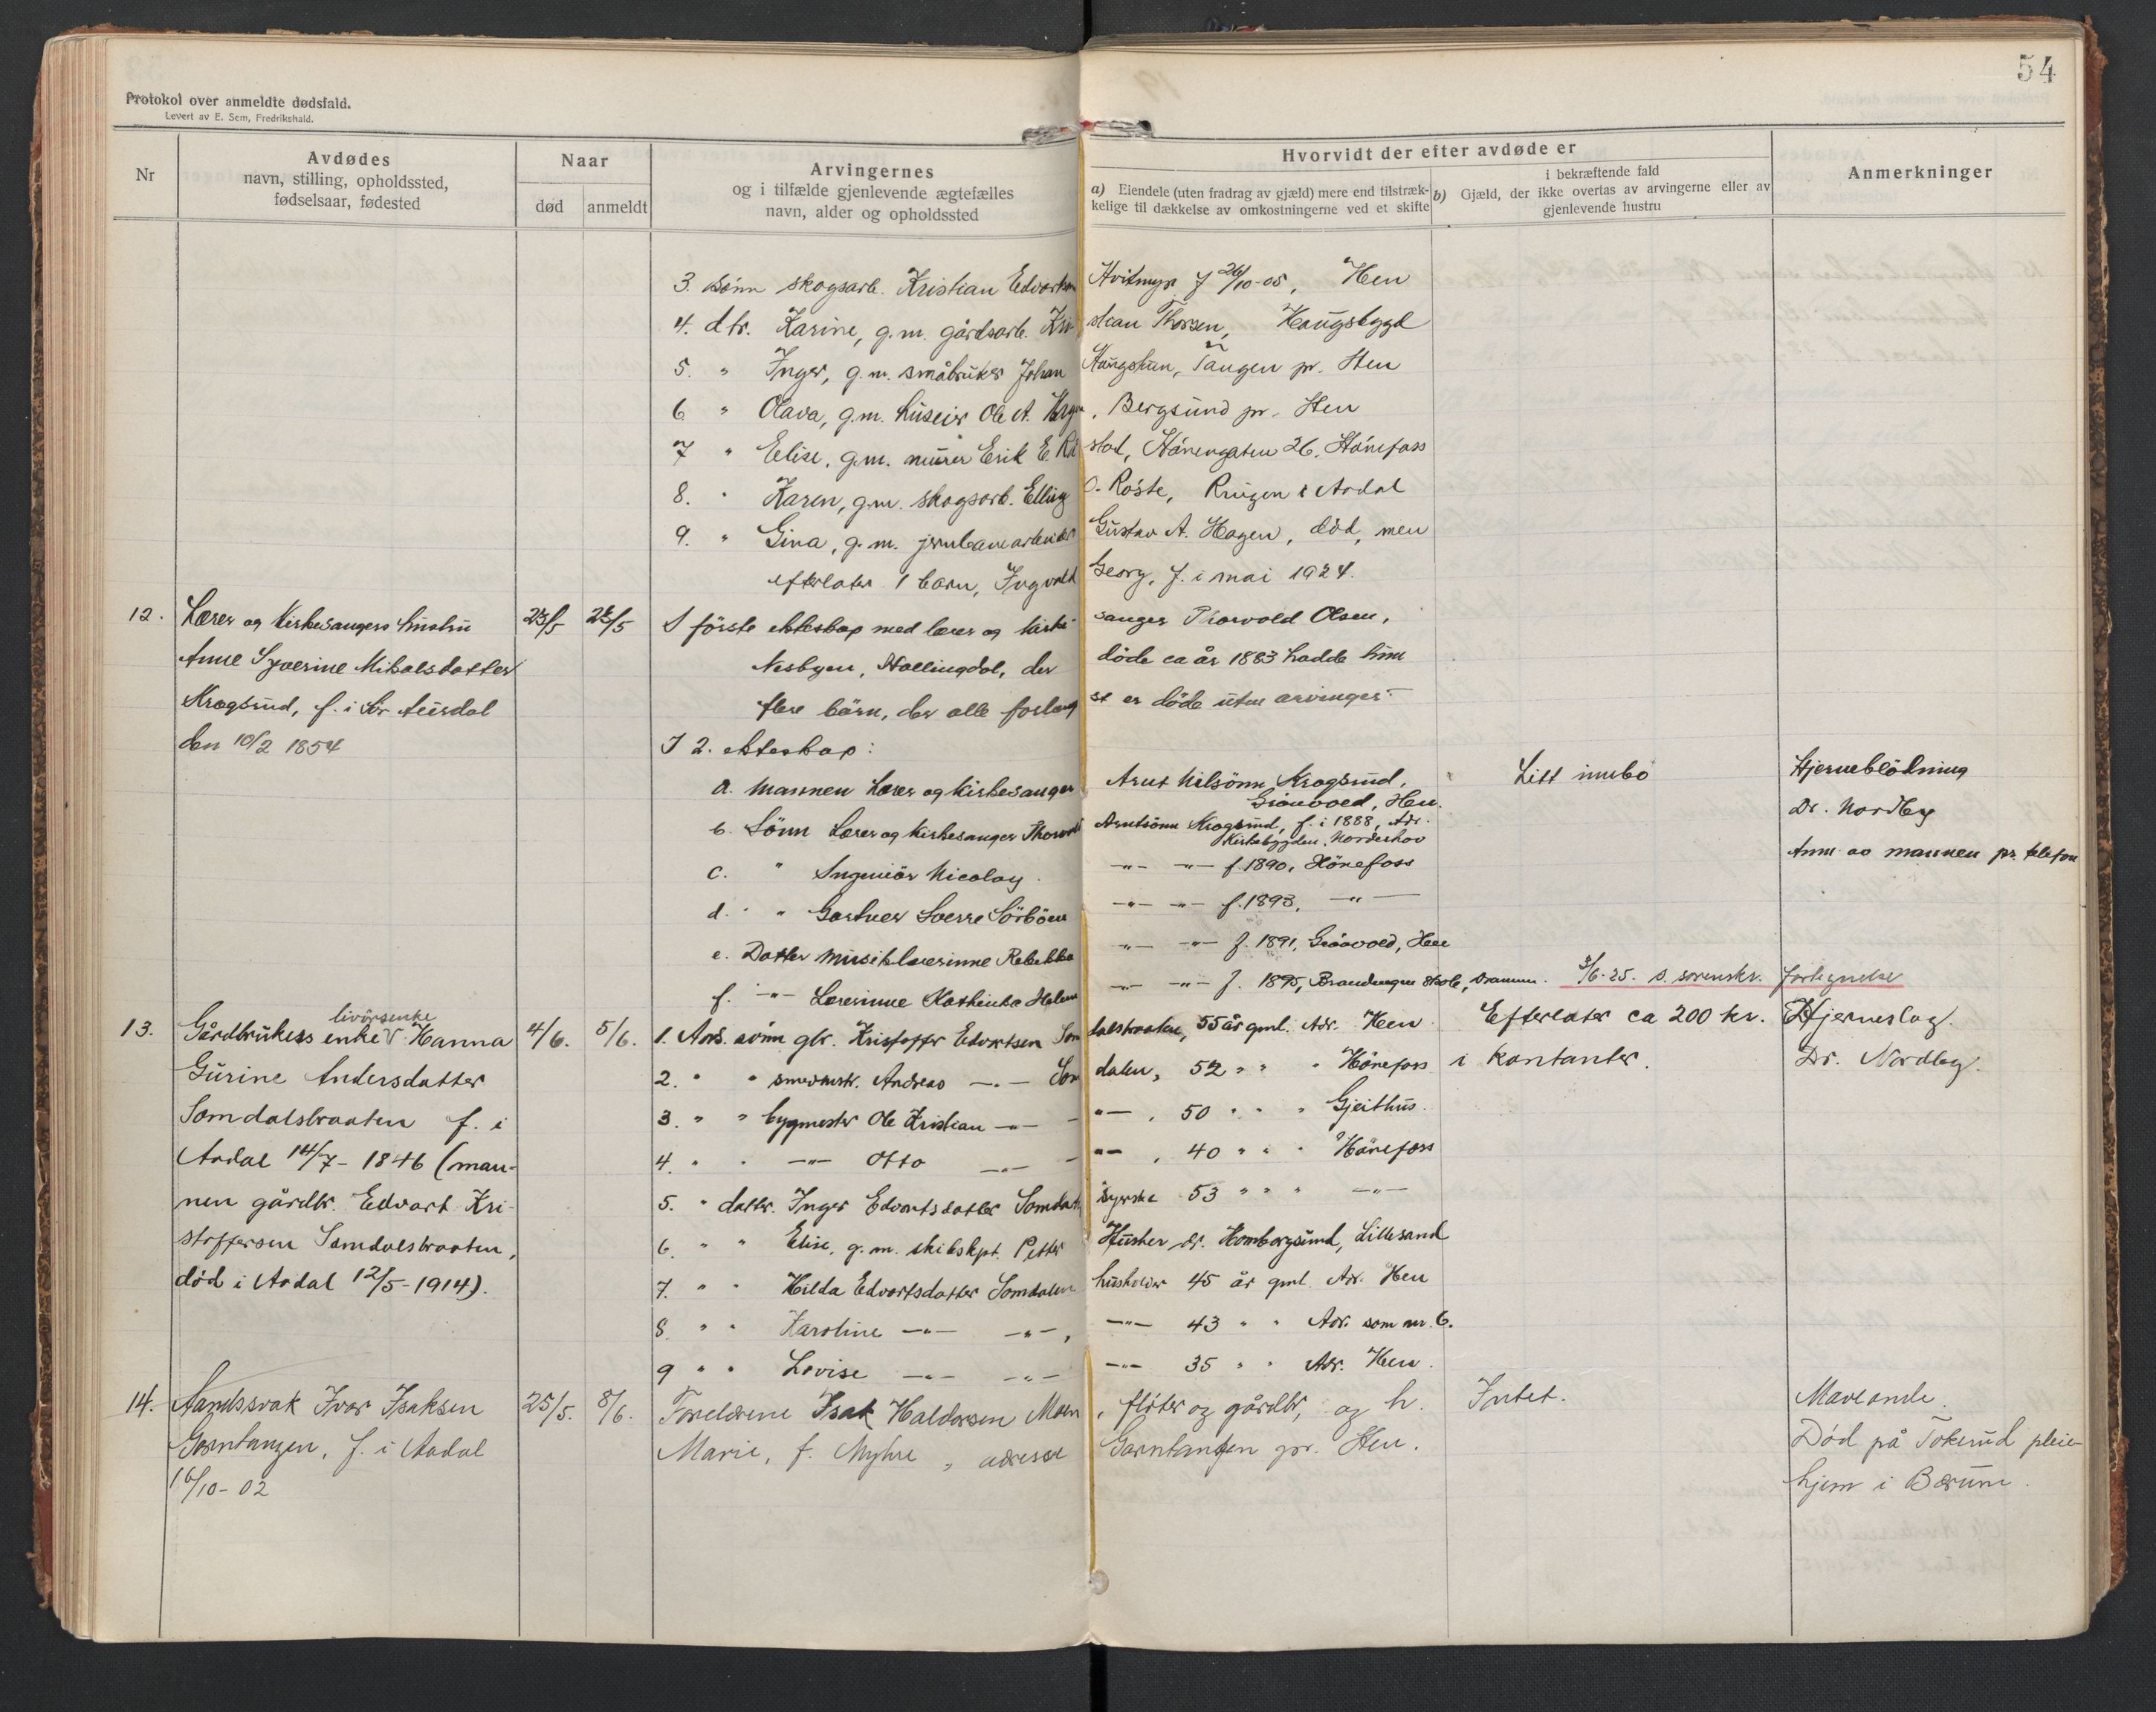 54
Protokol over anmeldte dødsfald.
Levert av E. Sem, Fredrikshald.
Nr
Avdødes
navn, stilling, opholdssted,
fødselsaar, fødested
Naar
død
anmeldt
Arvingernes
og i tilfælde gjenlevende ægtefælles
navn, alder og opholdssted
Hvorvidt der efter avdøde er
a) Eiendele (uten fradrag av gjæld) mere end tilstræk-
kelige til dækkelse av omkostningerne ved et skifte
i bekræftende fald
b) Gjæld, der ikke overtas av arvingerne eller av
gjenlevende hustru
Anmerkninger
3. sönn skogsarb. Kristian Edvartsen Hvitmyr f 26/10-05, Hen
4. dtr. Karine, g.m. gårdsarb. Kristian Thorsen, Haugsbygd
5. " Inger, g.m. småbruker Johan Haugstun, Tangen pr. Hen
6 " Olava, g.m. huseier Ole A. , Bergsund pr. Hen
7 " Elise, g.m. murer Erik E. stad, Hönengaten 26, Hönefoss
8. " Karen, g.m. skogsarb. Elling O. Röste, Ringen i Aadal
9. " Gina, g.m. jernbanearbeider Gustav A. Hagen, död, men
efterlater 1 barn, Ingvald Georg, f. i mai 1924.
12. Lærer og Kirkesangers hustru 23/5 25/5 I förste ekteskap med lærer og kirkesanger Thorvald Olsen,
Anne Syverine Mikalsdatter Nesbyen, Hallingdal, der döde ca år 1883 hadde hun
Kragsud, f. i Sör Aursdal flere börn, der alle forlengst er döde uten arvinger.
den 10/2 1854 I 2. ekteskap:
a. Mannen Lærer og Kirkesanger Arnt Nilsönn Kragsud, Litt innbo Hjerneblödning
Grönvold, Hen. Dr. Nordby
b. Sönn Lærer og kirkesanger Thorvald Arntsönn Kragsud, f. i 1888, Adr.
Kirkebygden, Norderhov Anm. av mannen pr. telefon
c. " Ingeniör Nicolay —"— —"— f. 1890, Hönefoss
d. " Gartner Sverre Sörböen —"— —"— f. 1893, —"—
e. Datter Musiklærerinne Rebekka —"— —"— f. 1891, Grönvold, Hen
f. —"— Lærerinne Kathinka Helene —"— —"— f. 1895, Brandengen Skole, Dramm. 3/6-25. s. sorenskr. fortegnelse
13. Gårdbrukers enke V Hanna 4/6. 5/6. 1. Ards. sönn gbr. Kristoffer Edvartsen Somdalsbraaten, 55 år gml. Adr. Hen Efterlater ca 200 kr. Hjerneslag.
livörsenke
Gurine Andersdatter 2. " " smedmstr. Andreas —"— Somdalen, 52 " " " Hönefoss i kontanter. Dr. Nordby.
Somdalsbraaten f. i 3. " " bygmester Ole Kristian —"— —"—, 50 " " " Gjeithus.
Aadal 14/7-1846 (man- 4. " " —"— Otto —"— —"—, 40 " " " Hönefoss
nen gårdbr. Edvart Kri- 5. " datter. Inger Edvartsdatter Somdalen syerske 53 " " " —"—
stoffersen Somdalsbraaten, 6. " " Elise, g.m. skibskpt. Petter adr. Homborgsund, Lillesand
död i Aadal 12/5-1914). 7. " " Hilda Edvartsdatter Somdalen husholder 45 år gml. Adr. Hen
8. " " Karoline —"— —"—, —"— 43 " " Adr. som nr. 6.
9 " " Lovise —"— —"— —"— 35 " " Adr. Hen.
14. Aandssvak Ivar Isaksen 25/5. 8/6. Foreldrene Isak Haldorsen Moen, flöter og gårdbr, og h. Intet. Maveonde.
Garntangen, f. i Aadal Marie, f. Myhre, adresse Garntangen pr. Hen. Död på Tokerud pleie-
16/10-02 hjem i Bærum.